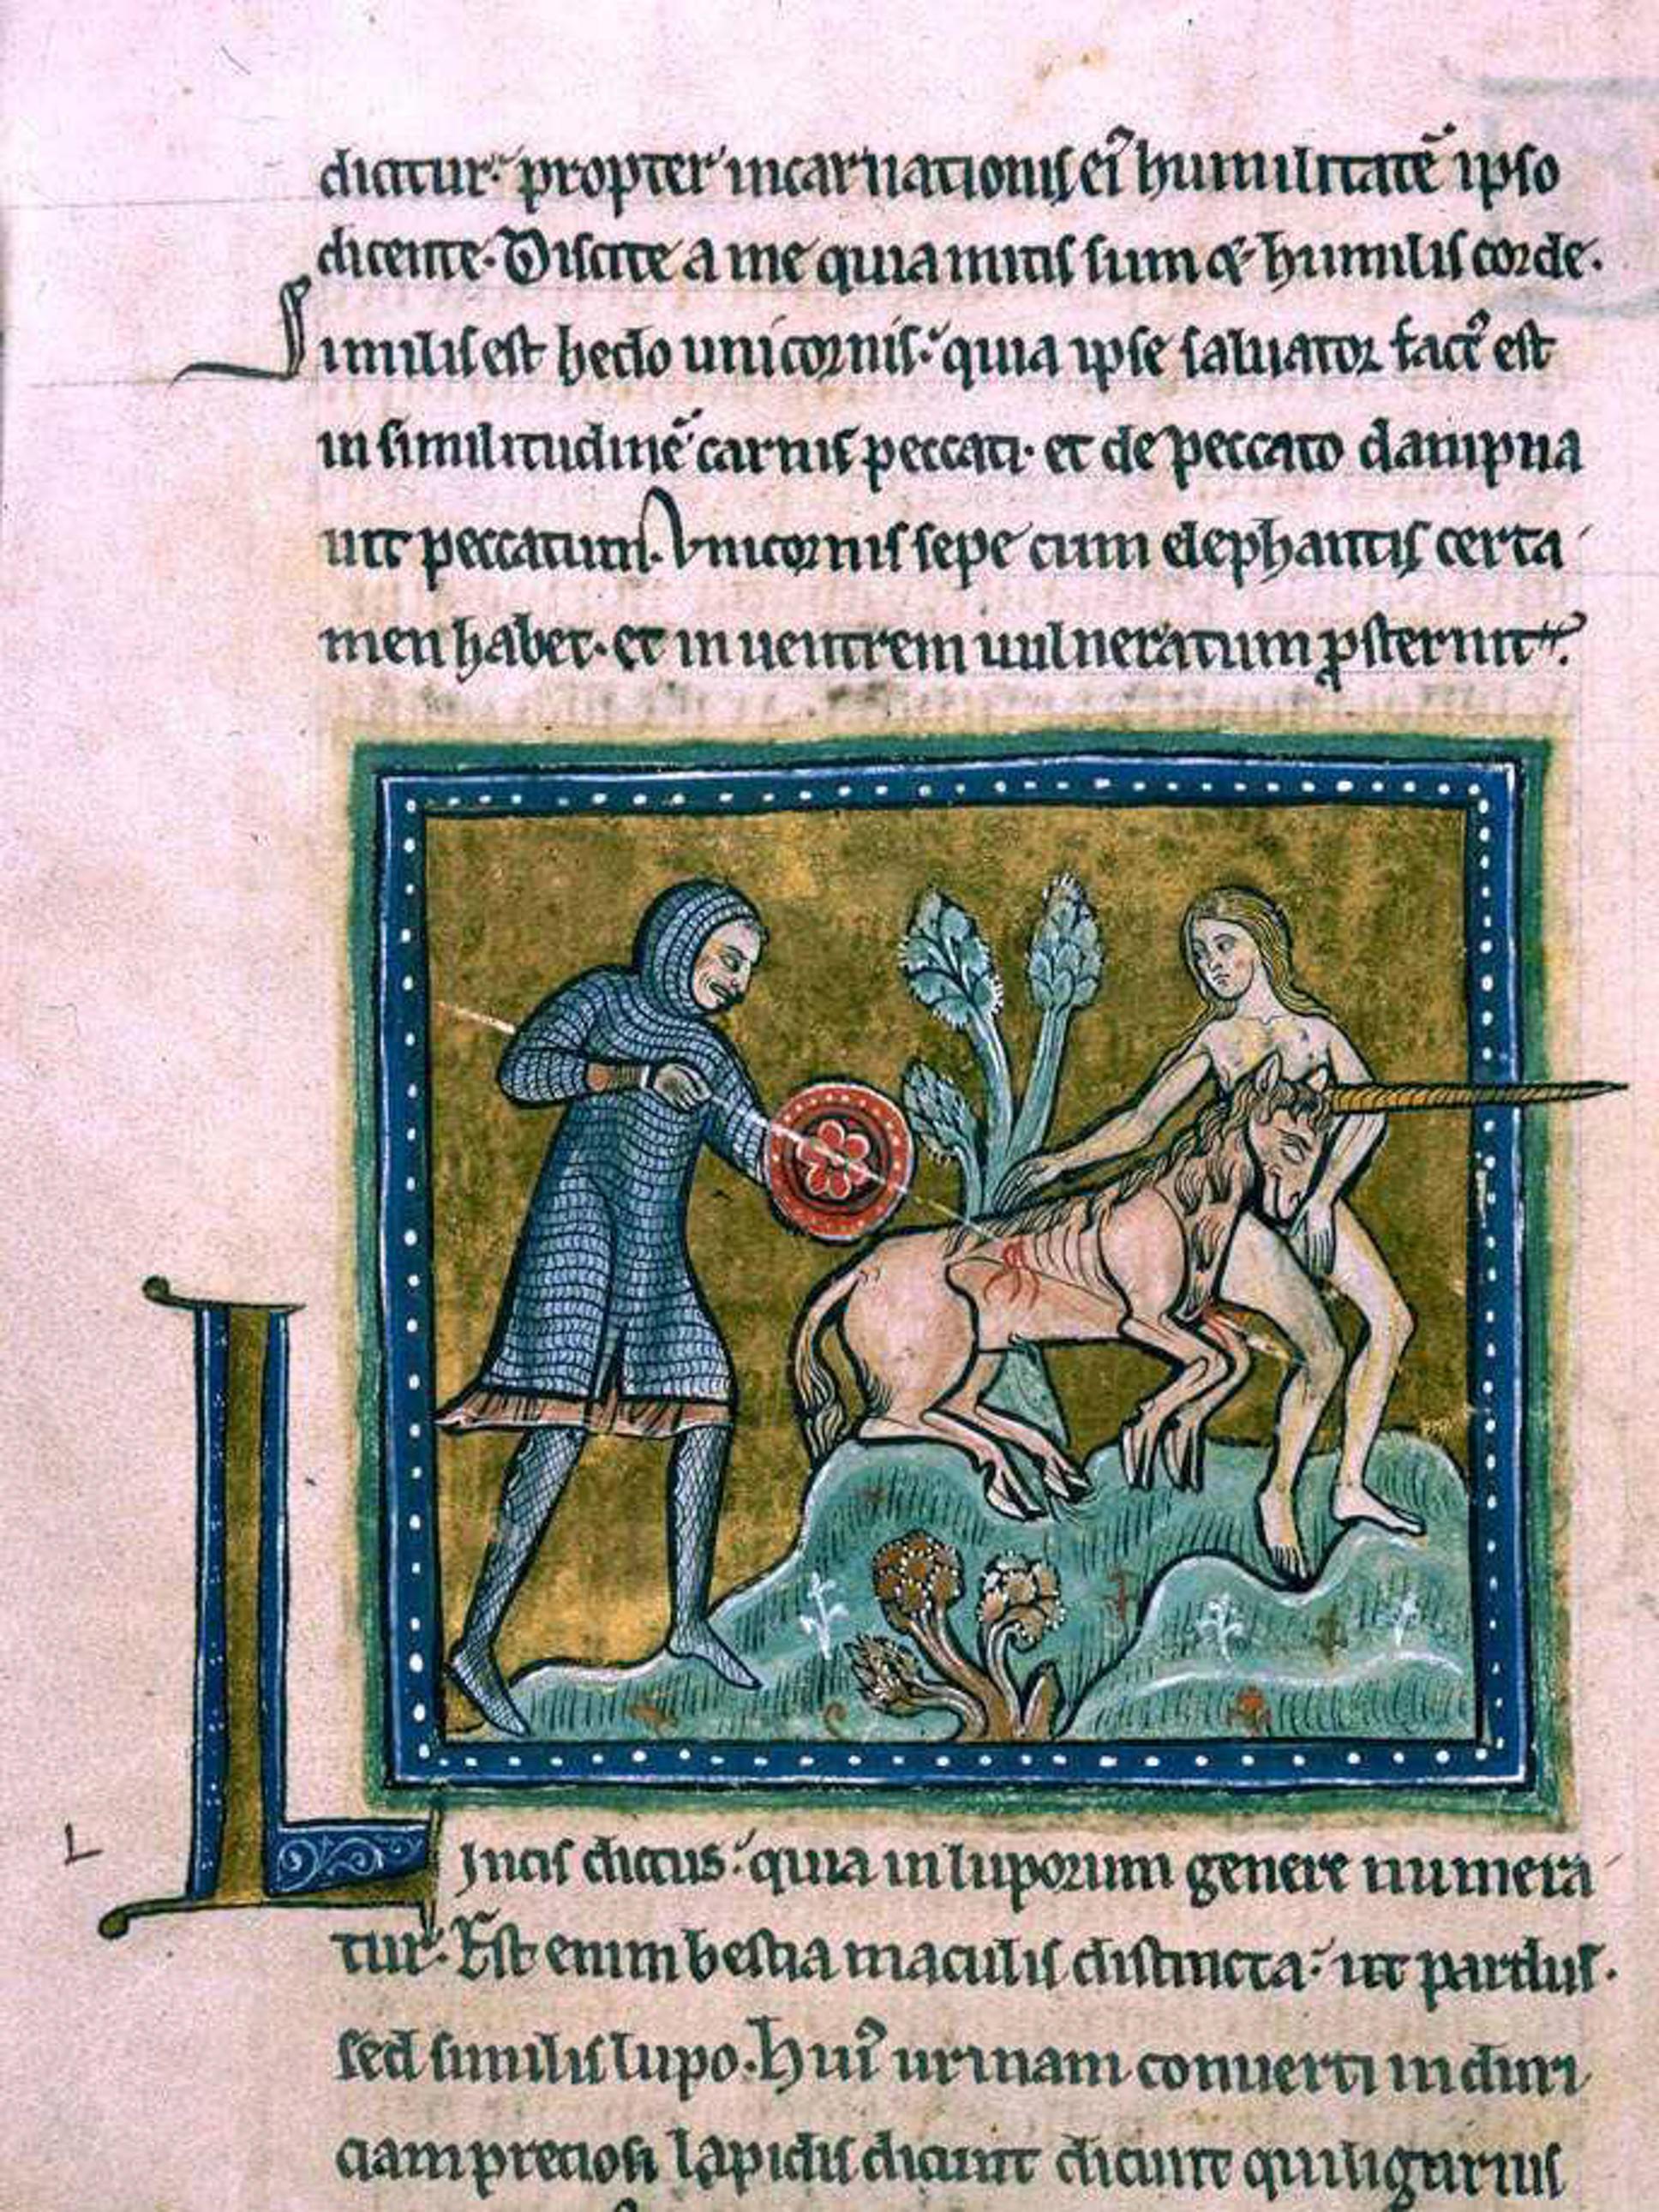 dicitur. propter incarnationis ei᾿ humilitatē ipso
dicente. Discite a me quia mitis sum & humilis corde.
Similis est hedo unicornis. quia ipse saluator fact᾿ est
in similitudinē carnis peccati. et de peccato dampna
uit peccatum. Vnicornis sepe cum elephantis certa
men habet. et in uentrem uulneratum ꝓsternit.
L
Lincis dictus. quia in luporum genere numera
tur. Est enim bestia maculis distincta. ut pardus.
sed similis lupo. Hui᾿ urinam conuerti in duri
ciam preciosi lapidis dicunt dicunt qui ligurius